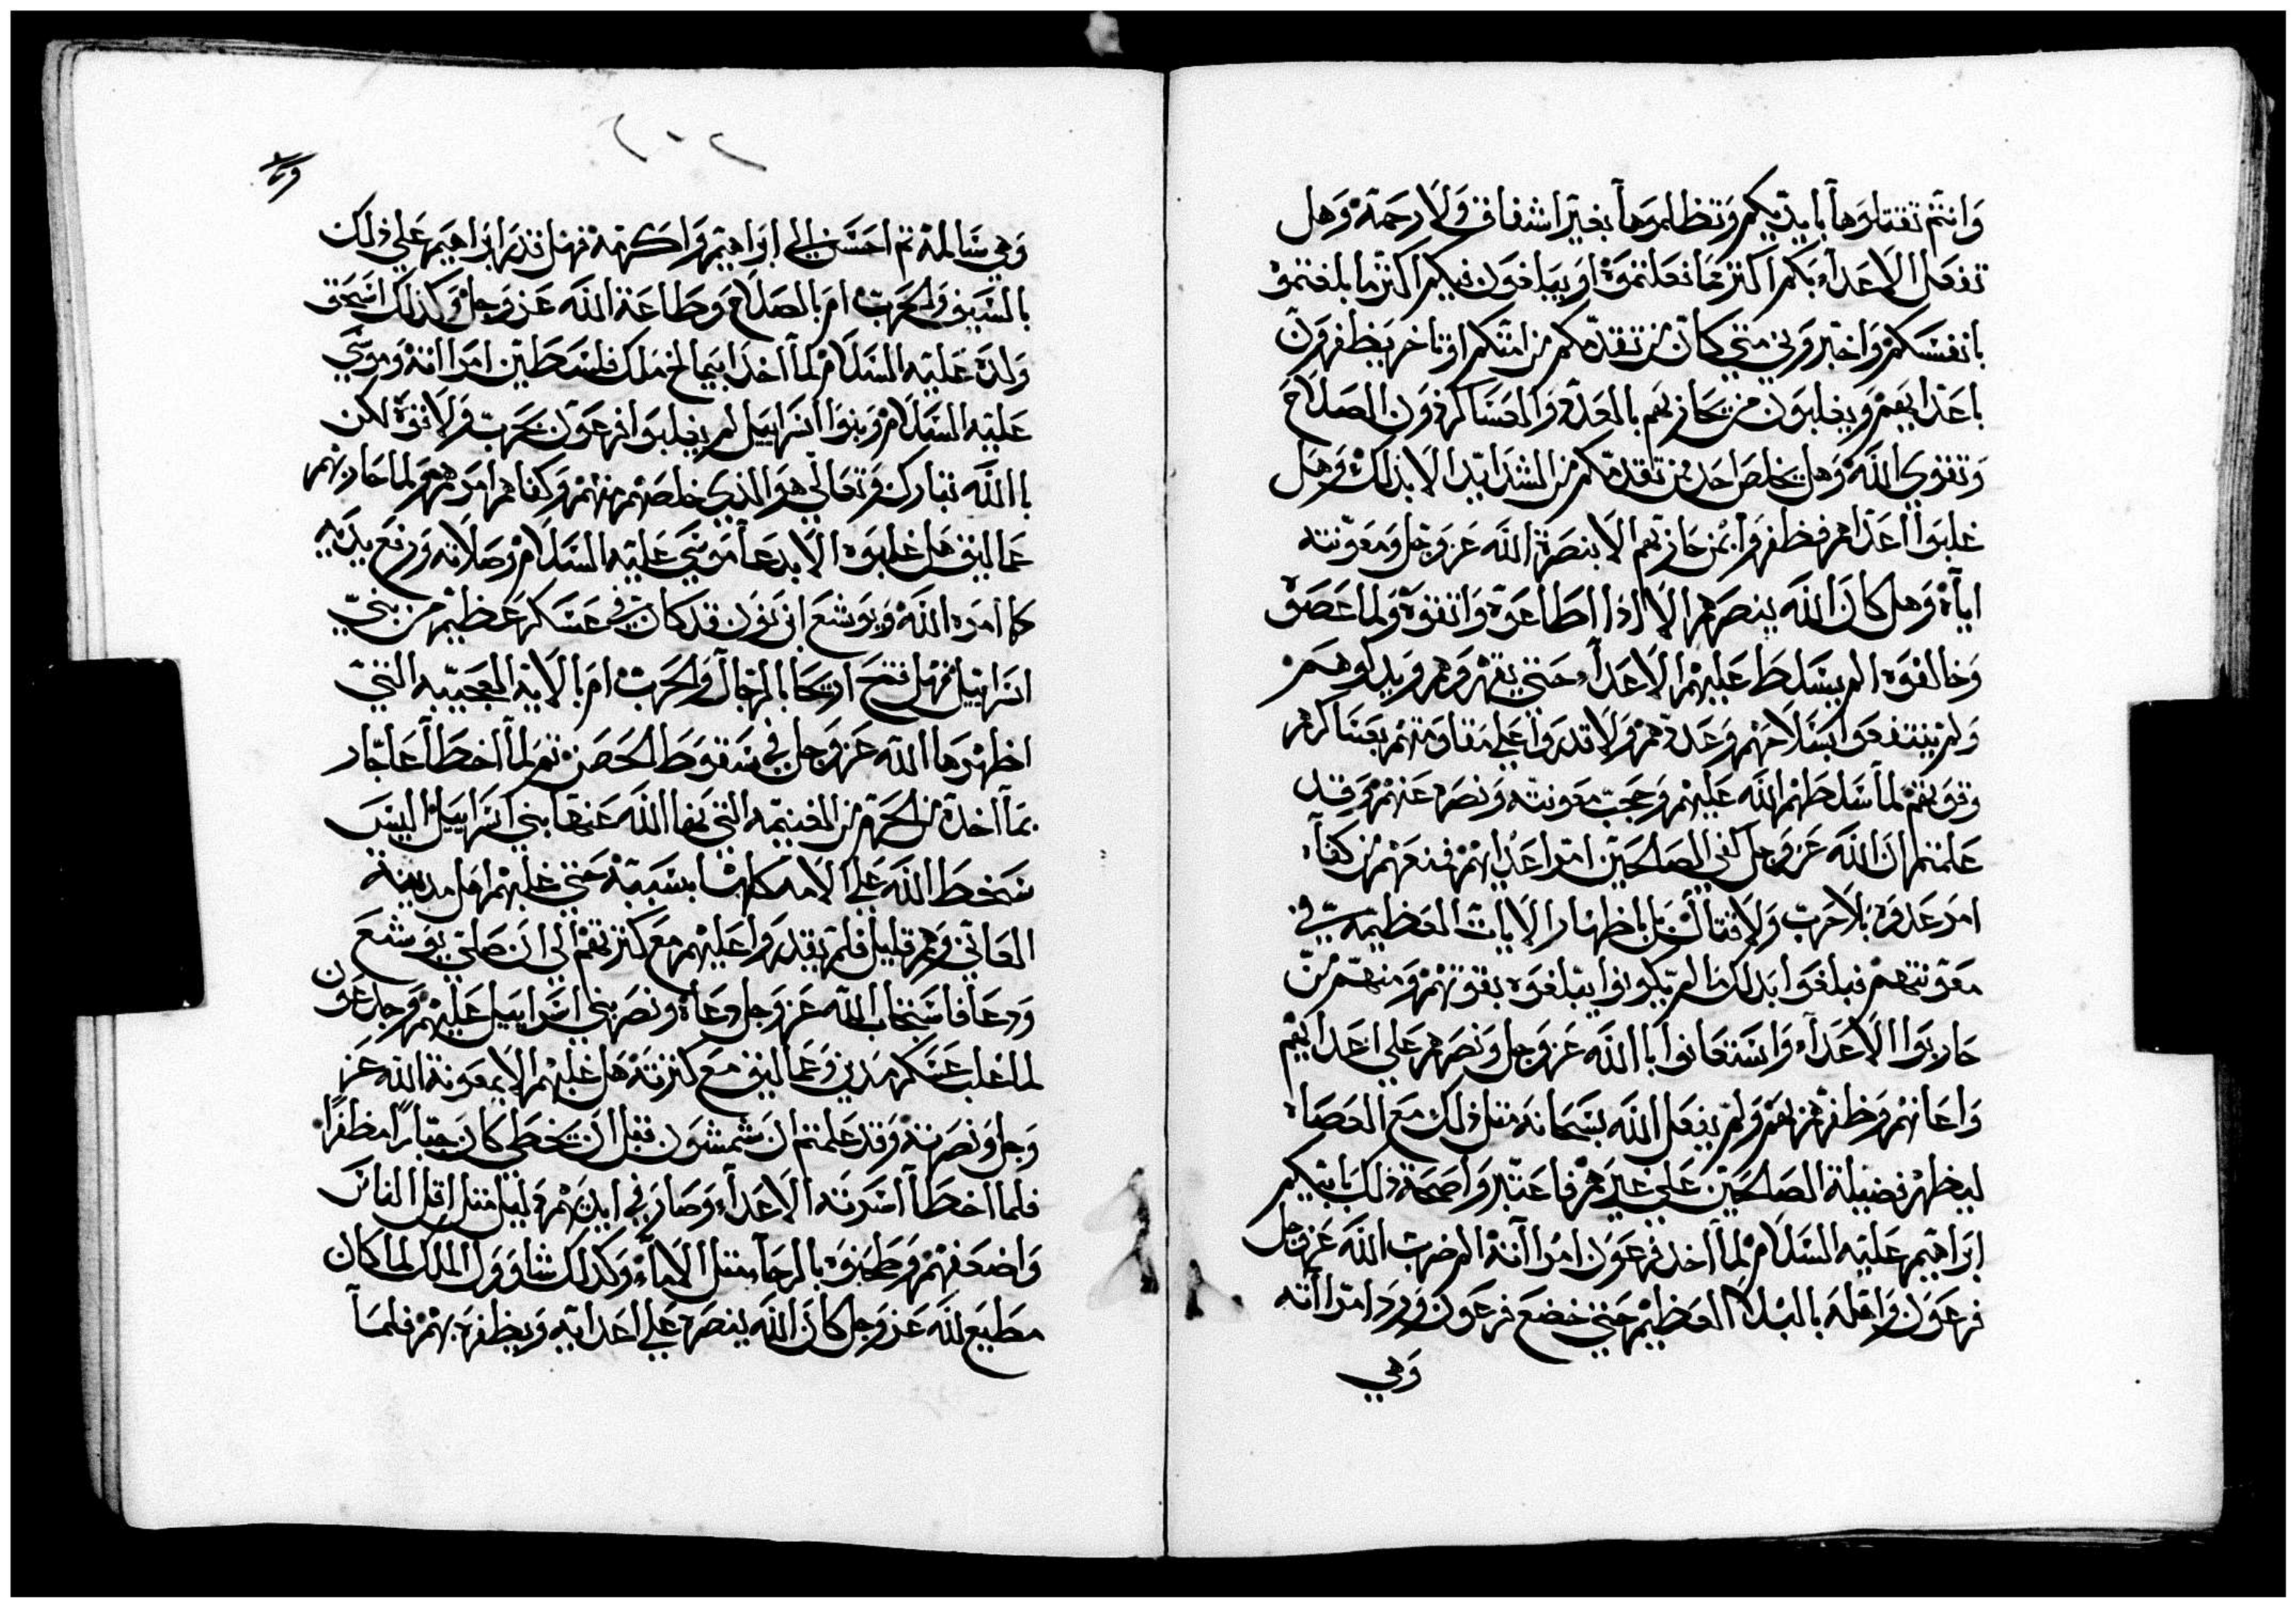 وَانتم تقتلوَها بايديكم وَتظلموَها بغير اشفاق وَلَا رحمَة وَهل
تفعَل الاعدَاء بكم اكثر مما فعلتموَه اوَ يبلغوَن فيكم اكثر ما بلغتموَ
بانفسكم وَاخبروَني متي كان من تقدمكم من امتكم اوَ تاخر يظفروَن
باعَدايهم وَيغلبوَن من يحَاربهم بالعدة وَالعَسَاكر دوَن الصلاح
وَتقوَي الله وَهل يخلص احَد ممن تقدمكم من الشدايد الا بذلك وَهل
غلبوَا اعدَاهم وظفروَا بمن حَاربهم الا بنصرة الله عَز وَجل وَمعوَنته
اياه وَهل كان الله ينصرهم الا اذا اطاعوَه وَاتقوَه وَلما عَصَوه
وَخالفوَه الم يسَلط عَليهم الاعدَاء حَتي يقهروَهم وَيدلوهم
وَلم ينتفعوَا بسَلاحَهم وَعَددهم وَلا قدروَا عَلي مقاوَمتهم بعَسَاكرهم
وقوَتهم لما سَلطهم الله عَليهم وَحجب معَونته وَنصره عَنهم وَقد
عَلمتم ان الله عَز وَجل كفي الصَالحَين امر اعدَايهم فمنعَهم من كفاه
امر عَدوَه بلا حَرب وَلا قتال بل باظهار الايات العَظيمه في
معَوَنتهم فبلغوَا بدلك ما لم يكوَنوا يبلغوَه بقوَتهم وَمنهم من
حَاربوَا الاعدَاء وَاستعَانوا باالله عَز وَجل وَنصرَهم عَلي اعَدايهم
وَاعَانهم وَظفرهم بهم وَلم يفعَل الله سبحانه متل ذلك معَ العصَاه
ليظهر فضيلة الصَالحَين عَلي غيرهم فاعَتبروَا صحَة ذلك بابيكم
ابرَاهيم عَليه السَلام لما اخد فرعَوَن امرَاته الم ضرب الله عَز وَجل
فرعَوَن وَاهله بالبلاء العَظيم حَتي خضع فرعَوَن وَرد امرَاته
وَهي
وَهي سَالمة تم احسَن الي ابرَاهيم وَاكرمه فهل قدر ابرَاهيم عَلي ذلك
بالسَيف وَالحَرب ام بالصلاح وَطاعَة الله عَز وَجل وَكذلك اسحَق
وَلده عَليه السَلام لما اخد ابيمالخ مَلك فلسَطين امرَاته وَموسَي
عَليه السَلام وَبنوَا اسرَاييل لم يغلبوَا فرعَوَن بحَرب وَلا قوَة لكن
باالله تبارك وَتعَالي هوَ الذي خلصَهم منهم وَكفاهم امرهم وَلما حَاربهم
عَماليق هل غلبوَه الا بدعَا موسَي عَليه السَلام وصلاته وَرفع يديه
كما امره الله وَيوَشع ابن نوَن قد كان في عَسَكر عَظيم من بني
اسرَاييل فهل فتحَ اريحَا بالرجَال وَالحَرب ام بالاية العَجيبه التي
اظهرها الله عَز وَجل في سَقوَط الحَصن تم لما اخطا عَاجَار
بما اخده من الحَرم من الغنيمه التي نها الله عَنها بني اسرَاييل اليسَ
سَخط الله عَلي الامه كلها بسَببه حَتي غلبهم اهل مدينة
العَاي وَهم قليل فلم يقدروَا عَليهم معَ كثرتهم الي ان صَلي يوَشعَ
وَدعَا فاسَتجاب الله عَز وَجل دعَاه وَنصر بني اسرَاييل عَليهم وَجدعَوَن
لما غلب عَسَكر مَدين وَعَماليق معَ كثرته هل غلبهم الا بمعَوَنة الله عَز
وَجل وَنصرته وَقد علمتم ان شمشوَن قبل ان يخطي كان جبارًا مظفرًا
فلما اخطا اسَرته الاعدَاء وَصَار في ايديهم دَليل متل اقل الناسَ
وَاضعفهم وَطحَنوَه بالرحَا متل الامَاء وَكذلك شاوَوَل الملك لما كان
مطيع لله عَز وَجل كان الله ينصره عَلي اعَدايه وَيظفره بهم فلما